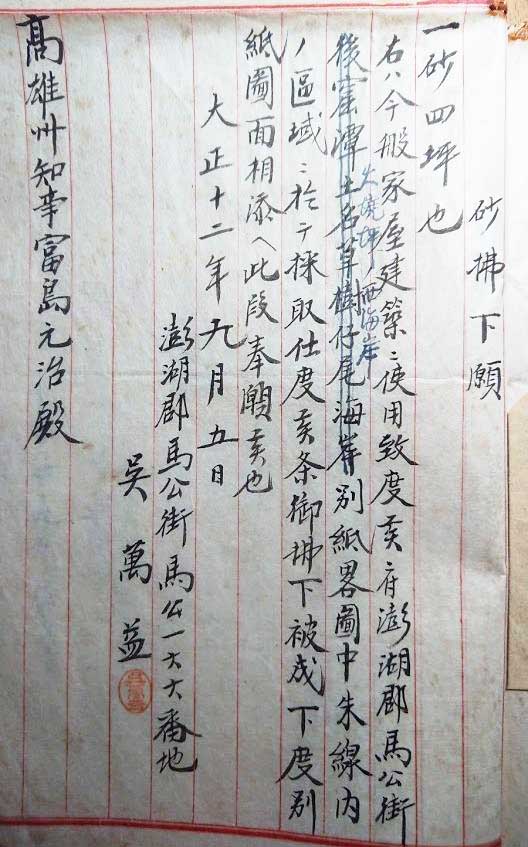 砂拂下願
一砂四坪也
右ハ今般家屋建築ニ使用致度候ニ付澎湖郡馬公街
火燒坪ノ西海岸
後窟潭土名草樹仔尾海岸別紙畧圖中朱線内
ノ區域ニ於テ採取仕度候条御拂下被成下度別
紙圖面相添ヘ此段奉願候也
大正十二年九月五日
澎湖郡馬公街馬公一六六番地
吳萬益
高雄州知事富島元治殿